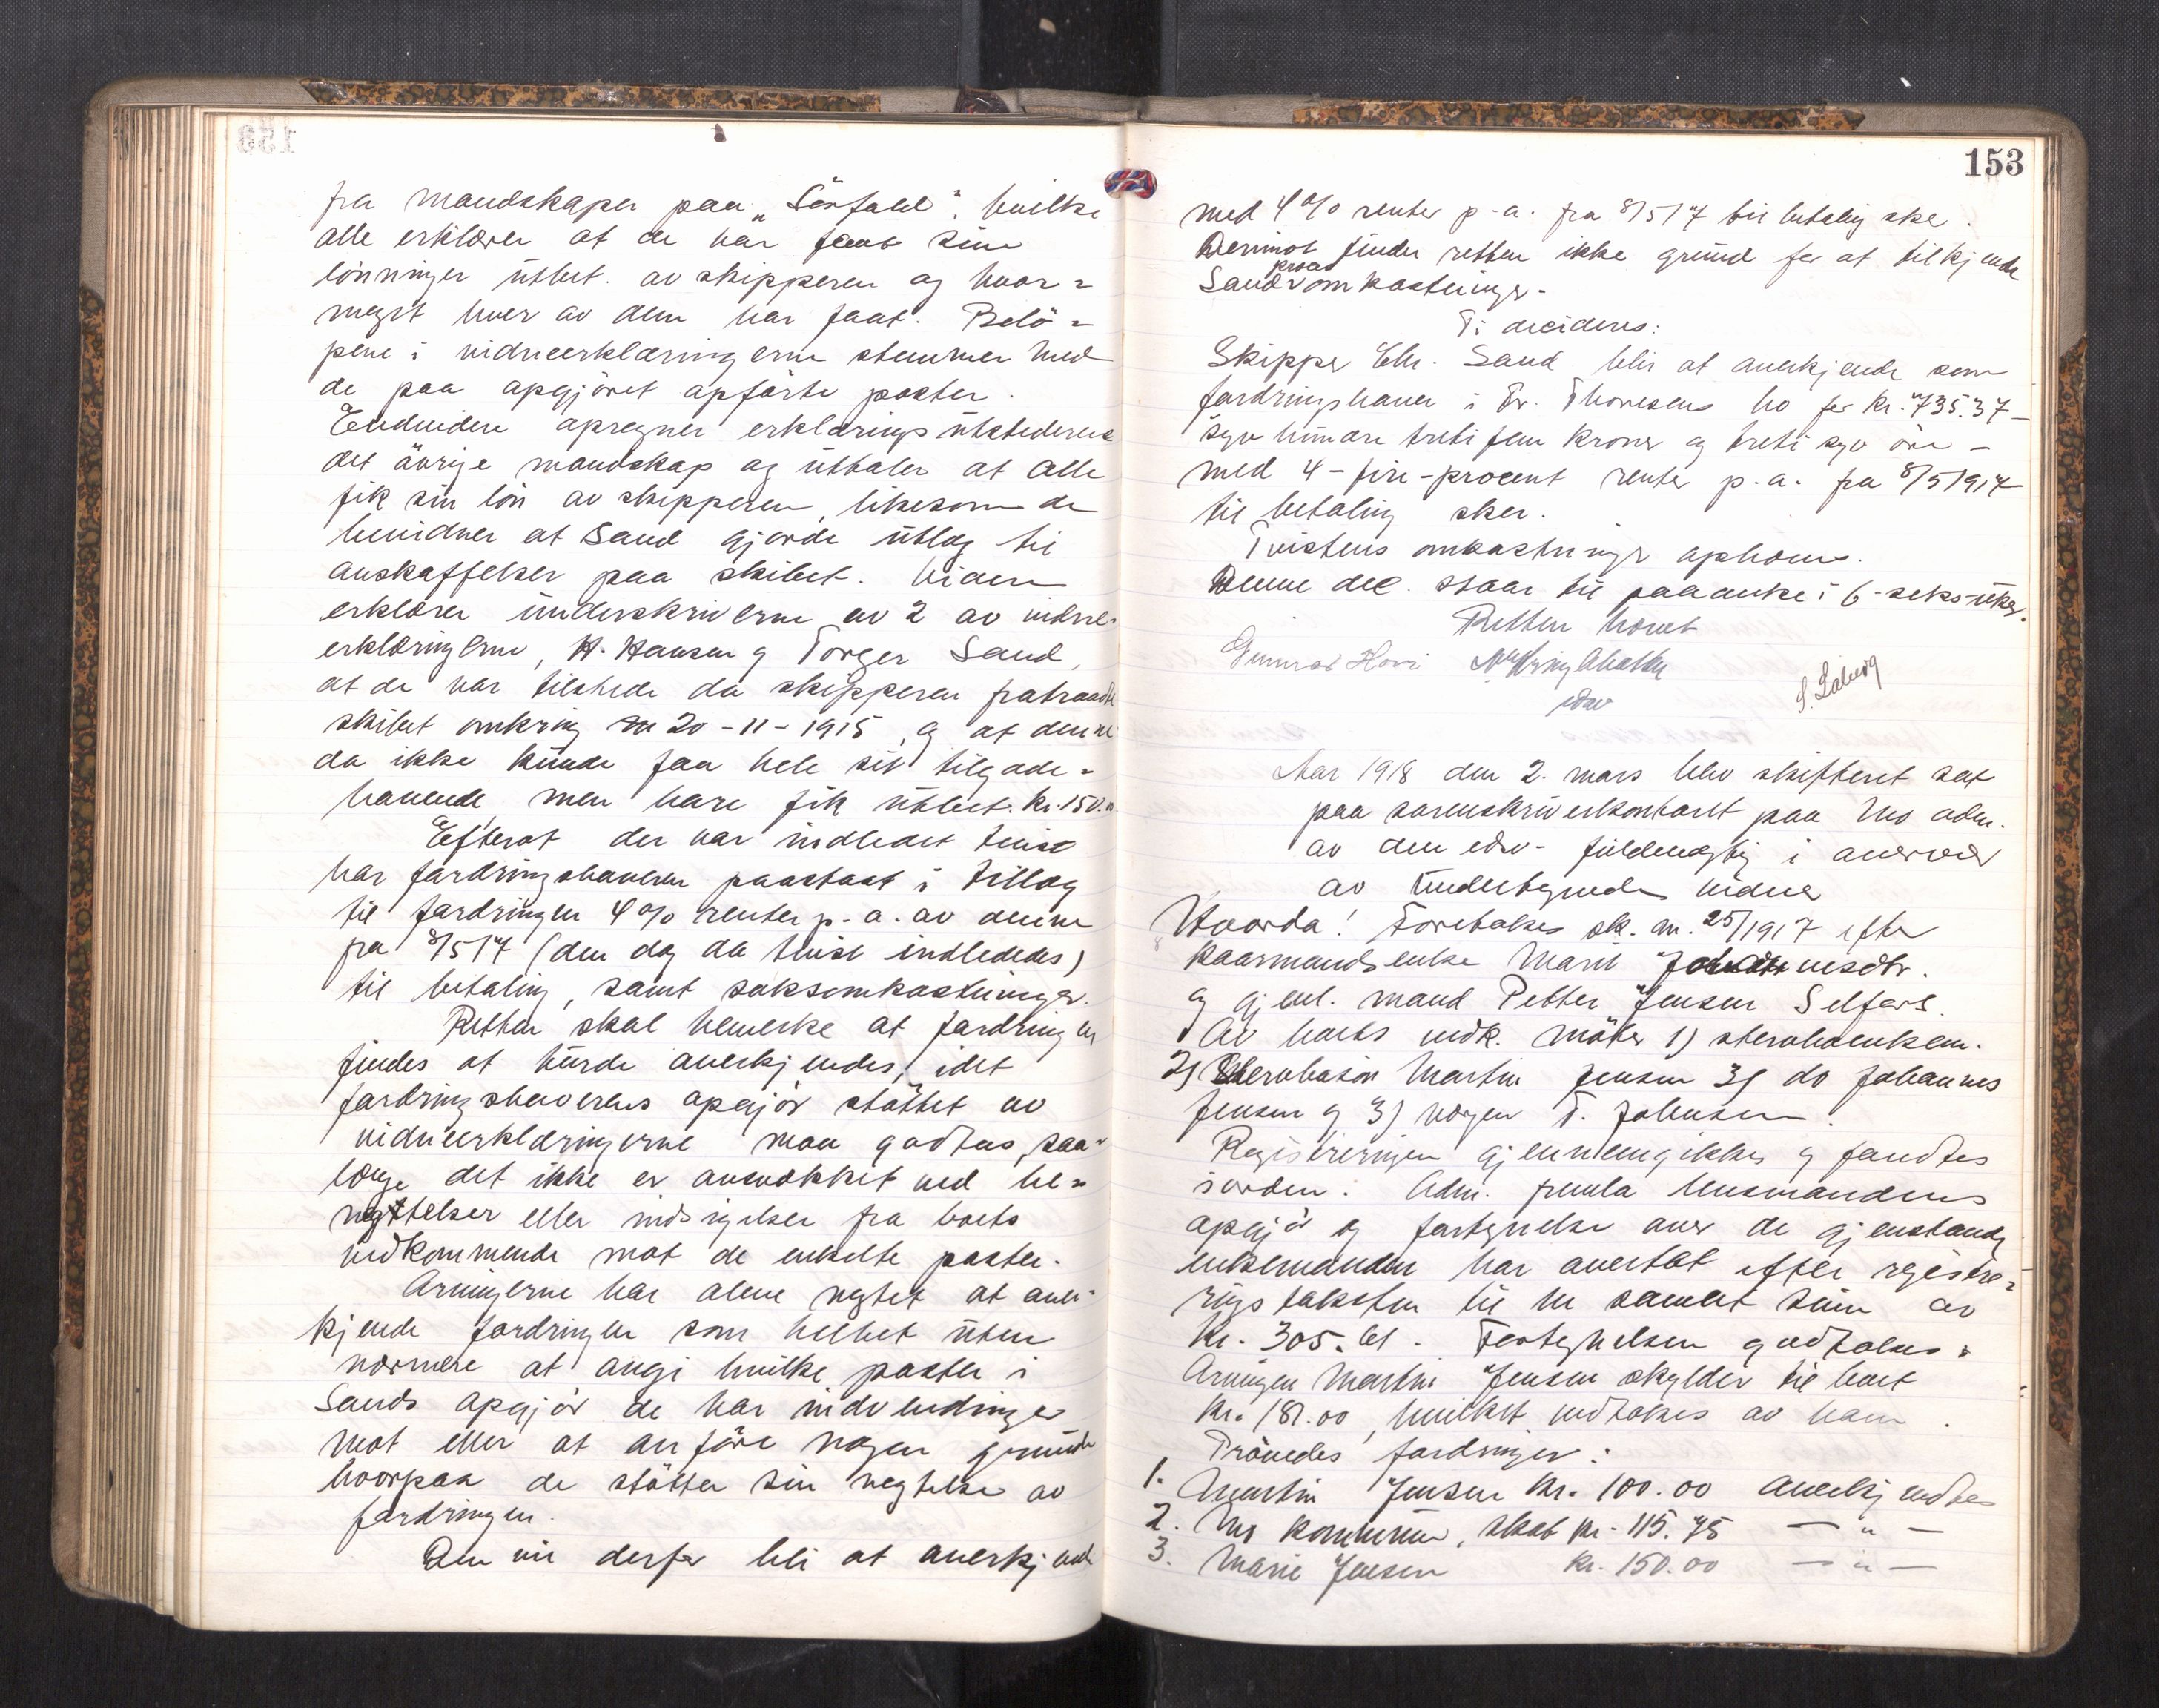 fra mandskaper paa „Sörfold", hvilke
alle erklærer at de har faat sine
lönninger utbet. av skipperen og hvor-
meget hver av dem har faat. Belö-
pene i vidneerklæringerne stemmer med
de paa opgjöret opförte poster.
Endvidere opregner erklæringsutstederne
det övrige mandskap og uttaler at alle
fik sin lön av skipperen, likesom de
bevidner at Sand gjorde utlæg til
anskaffelser paa skibet. Videre
erklærer underskriverne av 2 av vidne-
erklæringerne, H. Hansen og Torger Sand,
at de var tilstede da skipperen fratraadte
skibet omkring 20-11-1915, og at denne
da ikke kunde faa hele sit tilgode-
havende, men bare fik utbet. kr. 150.
Efterat der var indledet tvist
har fordringshaveren paastaat i tillæg
til fordringen 4 % renter p.a. av denne
fra 8/5 17 (den dag da tvist indlededes)
til betaling, samt saksomkostninger.
Retten skal bemerke at fordringen
findes at burde anerkjendes, idet
fordringshaverens opgjör støttet av
vidneerklæringerne maa godtas, saa-
længe det ikke er avsvækket ved be-
nægtelser eller indsigelser fra boets
vedkommende mot de enkelte poster.
Arvingerne har alene negtet at aner-
kjende fordringen som helhet uten
nærmere at angi hvilke poster i
Sands opgjör de har indvendinger
mot eller at anföre nogen grund
hvorpaa de støtter sin negtelse av
fordringen.
Den vil derfor bli at anerkjende
153
med 4 % renter p.a. fra 8/5 17 til betaling sker.
Derimot finder retten ikke grund for at tilkjende
Sand procesomkostninger.
Ti decideres:
Skipper Chr. Sand blir at anerkjende som
fordringshaver i Fr. Thoresens bo for kr. 735.37 -
syv hundre tretifem kroner og treti syv öre -
med 4 - fire - procent renter p.a. fra 8/5 1917
til betaling sker.
Tvistens omkostninger ophæves.
Denne dec. staar til paaanke i 6 - seks - uker.
Retten hævet
Gunnar Hovi
edsv
S. Laberg
Aar 1918 den 2. mars blev skifteret sat
paa sorenskriverkontoret paa Mo adm.
av den edsv. fuldmægtig i overvær
av undertegnede vidner
Hvorda! Foretokes sk. nr. 25/1917 efter
kaarmandsenke Marit Johannesdtr.
og gjenl. mand Petter Jensen Selfors.
Av boets vedk. møter 1) sterboenkem.
2) Sterbosön Martin Jensen 3) do Johannes
Jensen og 3) vergen T. Johnsen.
Registreringen gjennemgikkes og fandtes
iorden. Adm. fremla lensmandens
opgjör og fortegnelse over de gjenstande
enkemanden har overtat efter registre-
ringstaksten til en samlet sum av
kr. 305.61. Fortegnelsen godtokes.
Arvingen Martin Jensen skylder til boet
kr. 181.00, hvilket vedtokes av ham.
Prövedes fordringer:
1. Martin Jensen kr. 100.00 anerkjendtes
2. Mo kommune, skat kr. 115.75 — " —
3. Marie Jensen kr. 150.00 — " —